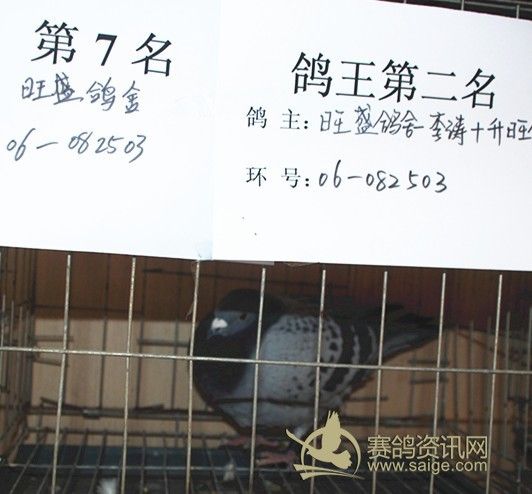 第 7 名
旺盛鸽舍
06-082503
鸽王第二名
鸽 主：旺盛鸽舍-李涛+升旺
环 号：06-082503
赛鸽资讯网
www.saige.com